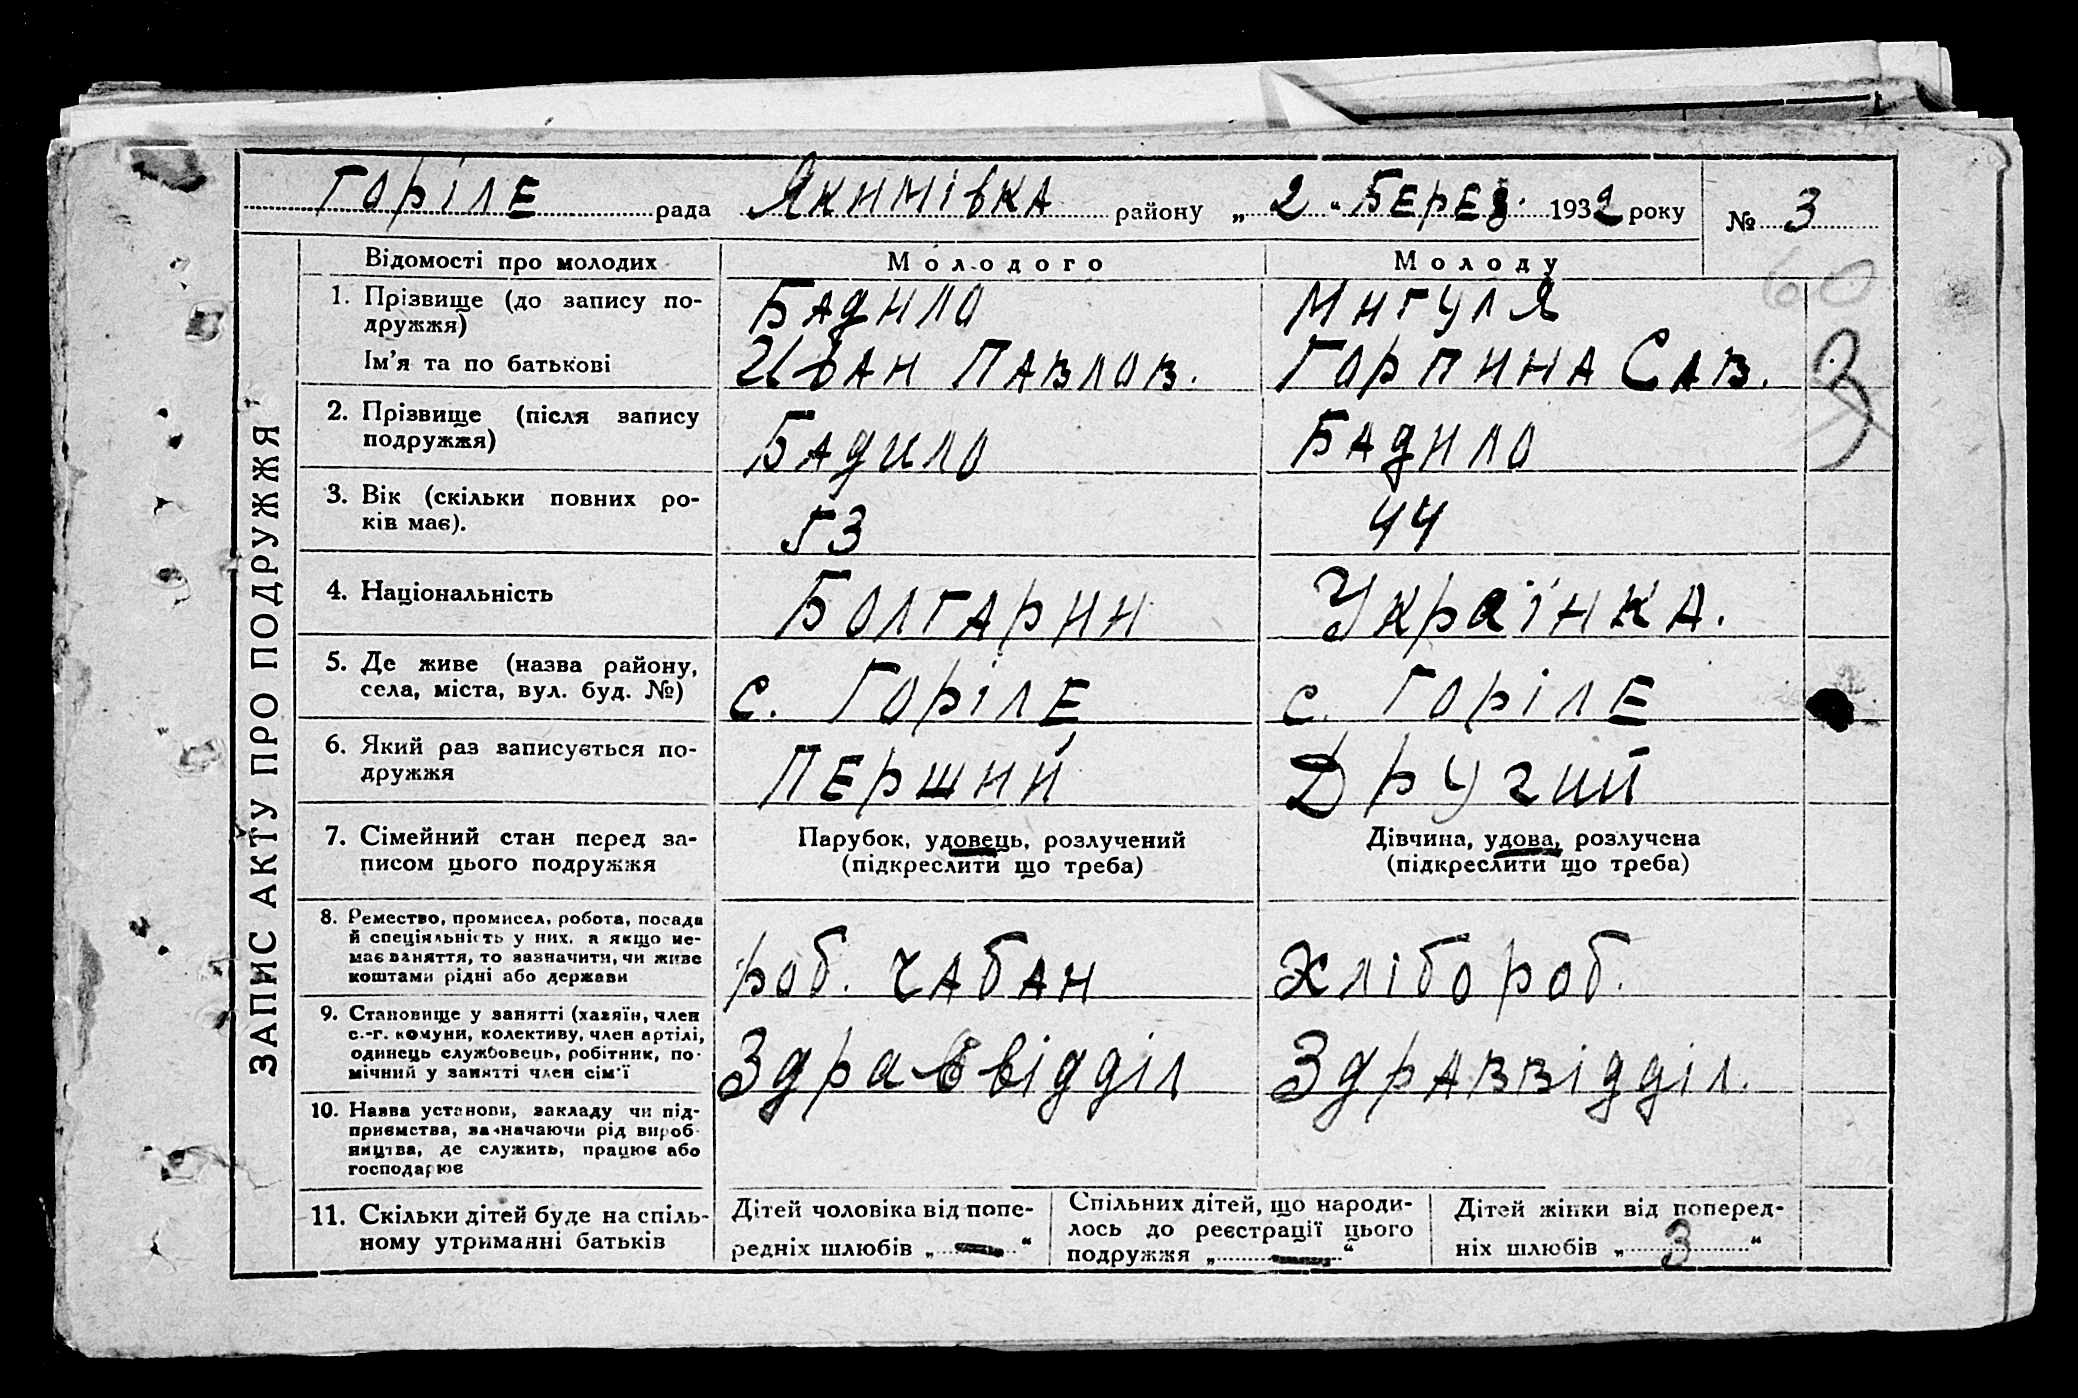 Горіле рада Якимівка району „ 2 “ Берез. 1932 року № 3
60
ЗАПИС АКТУ ПРО ПОДРУЖЖЯ
Відомості про молодих Молодого Молоду
1. Прізвище (до запису по-
дружжя)
Бадило Мигуля
Ім’я та по батькові Иван Павлов. Горпина Сав.
2. Прізвище (після запису
подружжя)
Бадило Бадило
3. Вік (скільки повних ро-
ків має).
53 44
4. Національність Болгарин Українка.
5. Де живе (назва району,
села, міста, вул. буд. №)
с. Горіле с. Горіле
6. Який раз записується по-
дружжя
Перший Другий
7. Сімейний стан перед за-
писом цього подружжя
Парубок, удовець, розлучений
(підкреслити що треба)
Дівчина, удова, розлучена
(підкреслити що треба)
8. Ремество, промисел, робота, посада
й спеціяльність у них, а якщо не-
має заняття, то зазначити, чи живе
коштами рідні або держави
роб. чабан Хлібороб.
9. Становище у занятті (хазяїн, член
с.-г. комуни, колективу, член артілі,
одинець службовець, робітник, по-
мічний у занятті член сім’ї
Здраввідділ Здраввідділ.
10. Назва установи, закладу чи під-
приємства, зазначаючи рід вироб-
ництва, де служить, працює або
господарює
11. Скільки дітей буде на спіль-
ному утриманні батьків
Дітей чоловіка від попе-
редніх шлюбів „ — “
Спільних дітей, що народи-
лось до реєстрації цього
подружжя „ — “
Дітей жінки від поперед-
ніх шлюбів „ 3 “